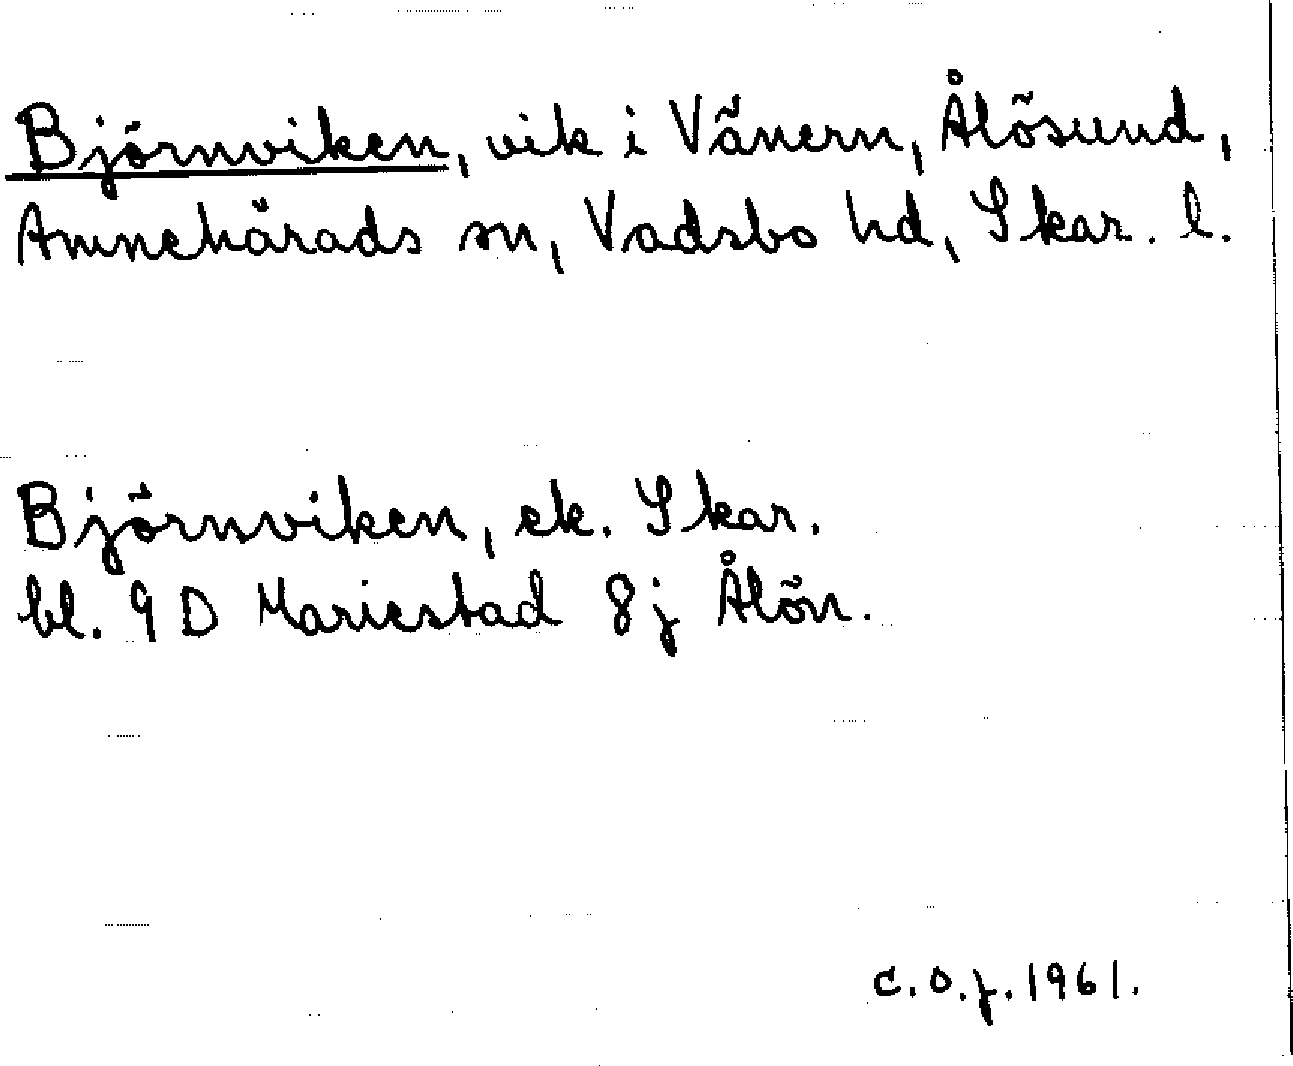 Björnviken, vik i Vänern, Ålösund,
Amnehärads sn, Vadsbo hd, Skar. l.
Björnviken, ek. Skar.
bl. 9 D Mariestad 8 j Ålön.
C.O.J. 1961.